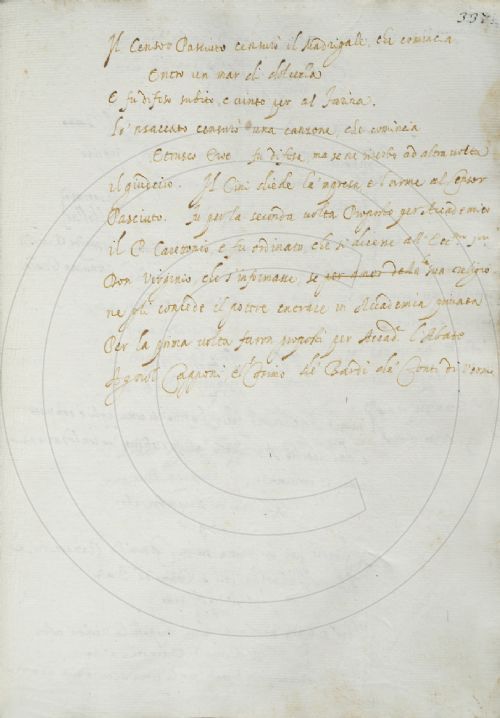 337
Il Censor Pasciuto censurò il Madrigale, che comincia
Entro un mar di
E fu difeso subito, e vinto per al
Lo 'nsaccato censurò una canzone, che comincia
Etrusco Eroe. fu difesa, ma se ne riserbò ad altra volta
il giudicio. Il Cini chiede la 'npresa e l'arme al Censor
Pasciuto. fu per la seconda volta Proposto per Accademico
il P. Caveronio, e fu ordinato, che si dicene all' Ecc.mo
Don Virginio, che s'informasse, se per quer della sua religio
ne gli concede il potere entrare in Accademia privata
Per la prima volta furon proposti per Accad. l'Abate
Capponi e 'l Cosimo de' Bardi de' Conti di Vernio